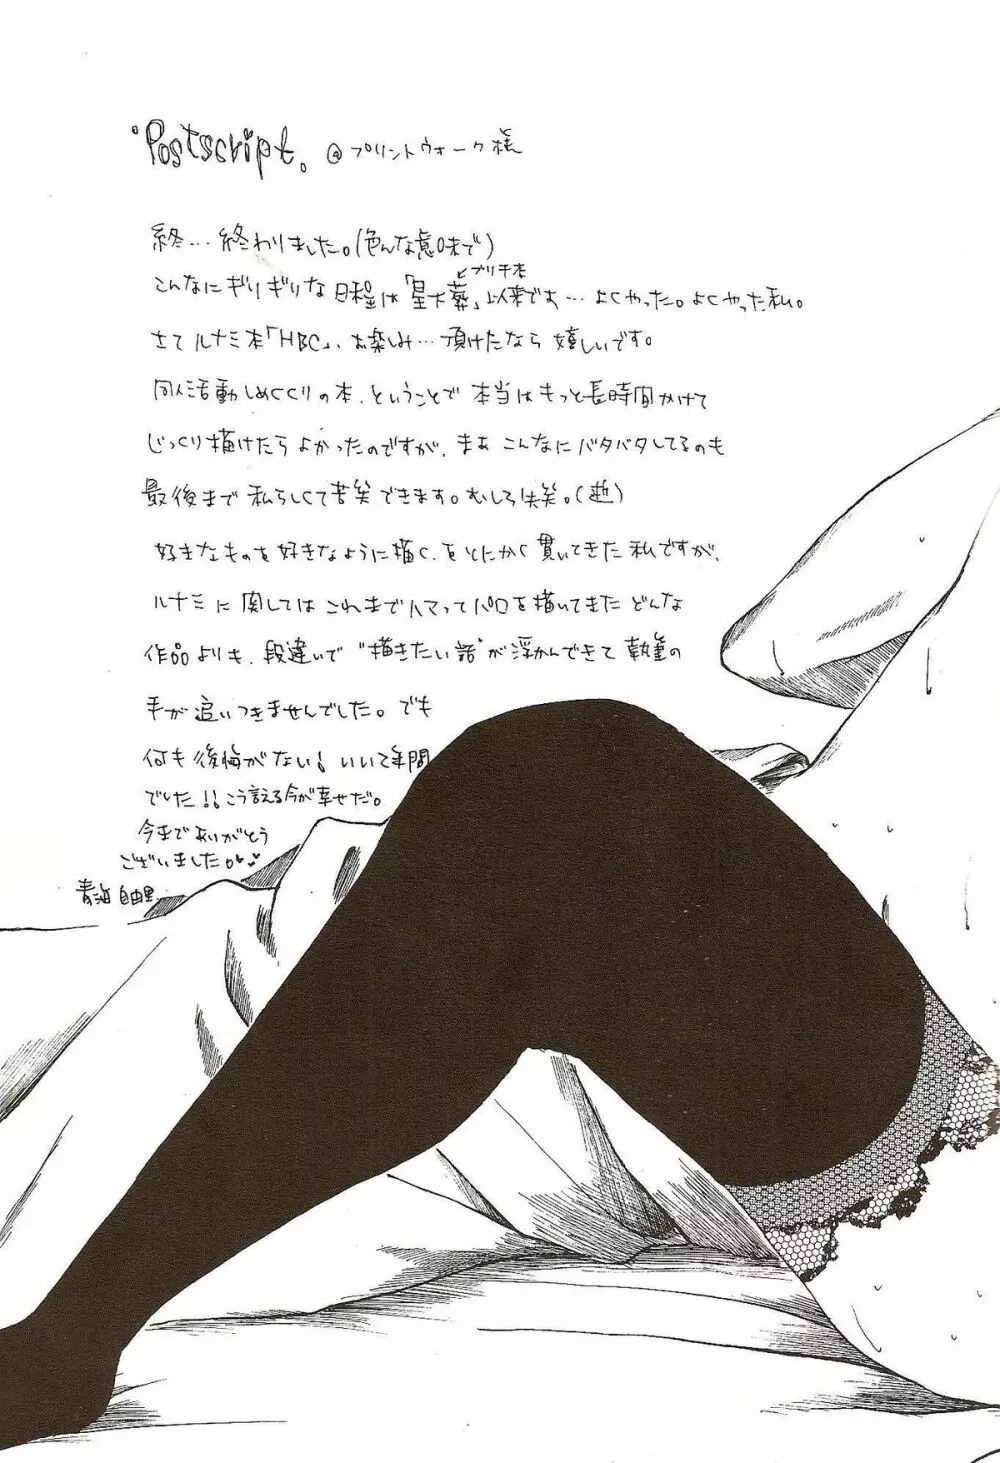 Postscript. @プリントウォーク様
終…終わりました。(色んな意味で)
こんなにギリギリな日程は「星大葬」以来です…よくやった。よくやった私。
↙プリ千本
さてルナミ本「HBC」、お楽しみ…頂けたなら嬉しいです。
同人活動しめくくりの本、ということで本当はもっと長時間かけて
じっくり描けたらよかったのですが、まあこんなにバタバタしてるのも
最後まで私らしくて苦笑できます。むしろ失笑。
好きなものを好きなように描く、をとにかく貫いてきた私ですが、
ルナミに関してはこれまでハマってパロを描いてきたどんな
作品よりも、段違いで“描きたい話”が浮かんできて執筆の
手が追いつきませんでした。でも
何も後悔がない!いい2年間
でした!!こう言える今が幸せだ。
今までありがとう
ございました。
青海自由里